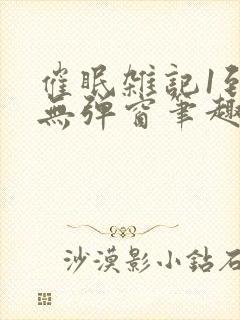 催眠雑記1到
無彈窗筆趣
沙漠影小鉆石